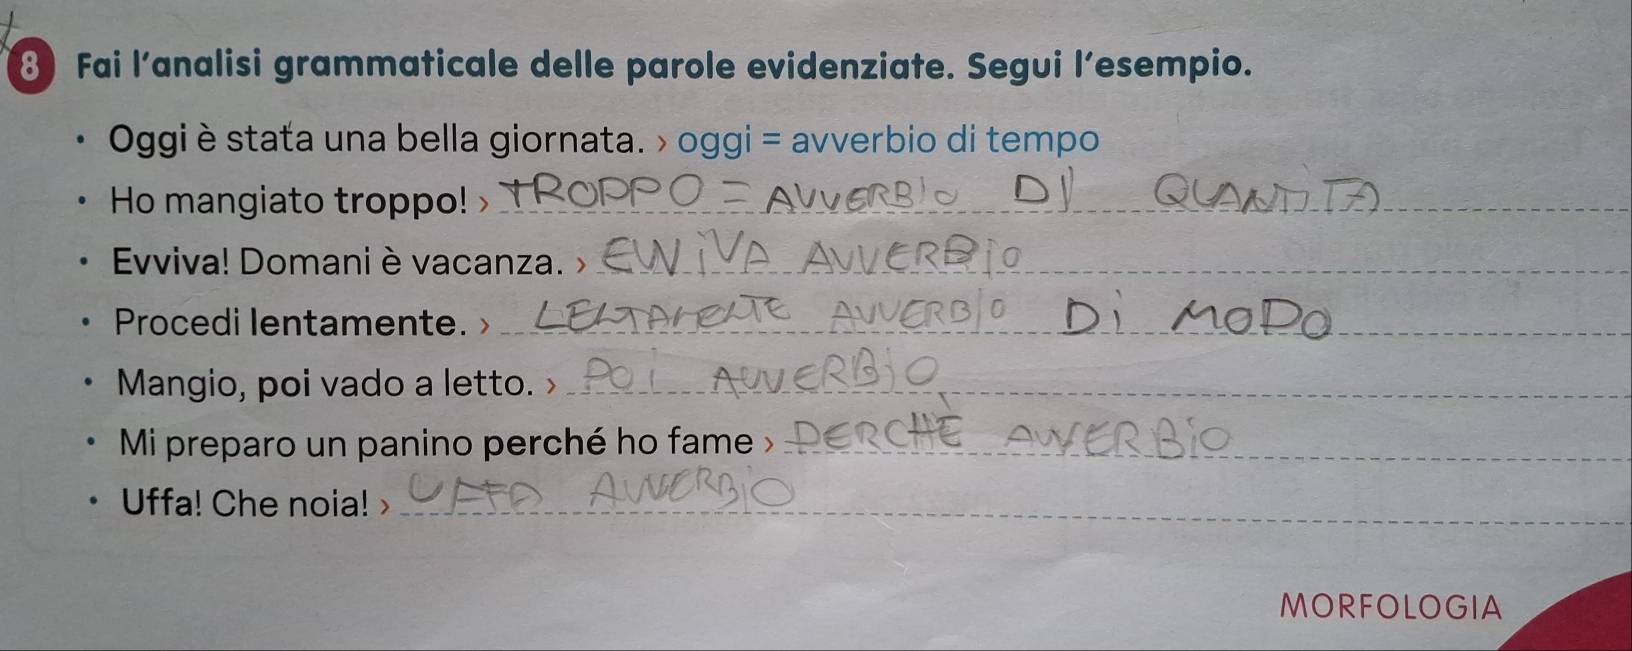 8 Fai l'analisi grammaticale delle parole evidenziate. Segui l'esempio.
• Oggi è stata una bella giornata. › oggi = avverbio di tempo
• Ho mangiato troppo! › TROPPO = AVVERBIO DI QUANTITA
• Evviva! Domani è vacanza. › EVVIVA AVVERBIO
• Procedi lentamente. › LENTAMENTE AVVERBIO Di MODO
• Mangio, poi vado a letto. › POI AVVERBIO
• Mi preparo un panino perché ho fame › PERCHÈ AVVERBIO
• Uffa! Che noia! › UFFA AVVERBIO
MORFOLOGIA